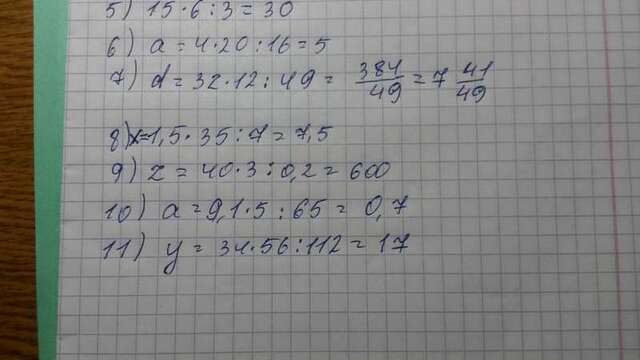 5) 15·6:3=30
6) a=4·20:16=5
7) d=32·12:49= 384/49=7 41/49
8) x=1,5·35:7=7,5
9) z=40·3:0,2=600
10) a=9,1·5:65=0,7
11) y=34·56:112=17